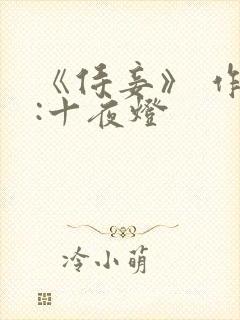 《侍妾》 作
:十夜燈
冷小萌